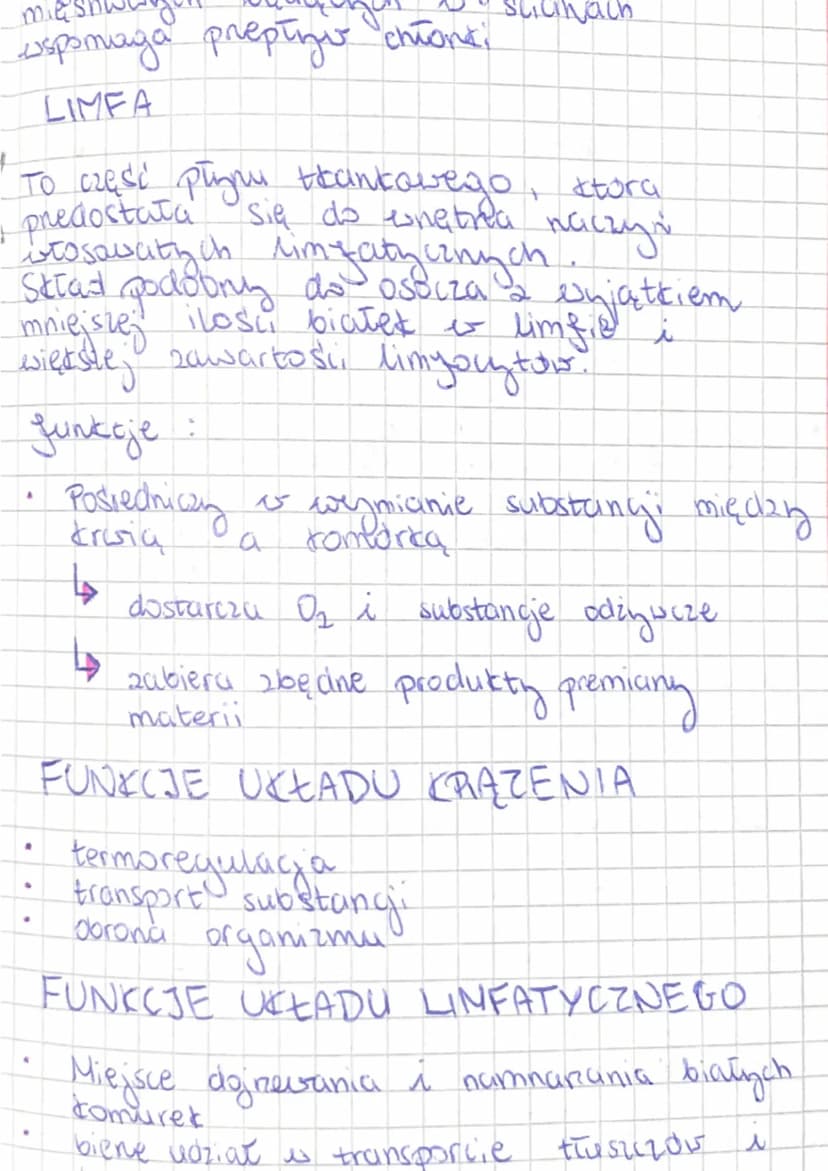 ścianach
wspomaga przepływ chłonki
LIMFA
To część płynu tkankowego, która
przedostała się do wnętrza naczyń
włosowatych limfatycznych.
Skład podobny do osocza z wyjątkiem
mniejszej ilości białek w limfie i
większej zawartości limfocytów.
funkcje :
• Pośredniczy w wymianie substancji między
krwią a komórką
↳ dostarcza O₂ i substancje odżywcze
↳ zabiera zbędne produkty przemiany
materii
FUNKCJE UKŁADU KRĄŻENIA
• termoregulacja
• transport substancji
• obrona organizmu
FUNKCJE UKŁADU LIMFATYCZNEGO
• Miejsce dojrzewania i namnażania białych
komurek
• bierze udział w transporcie tłuszczów i